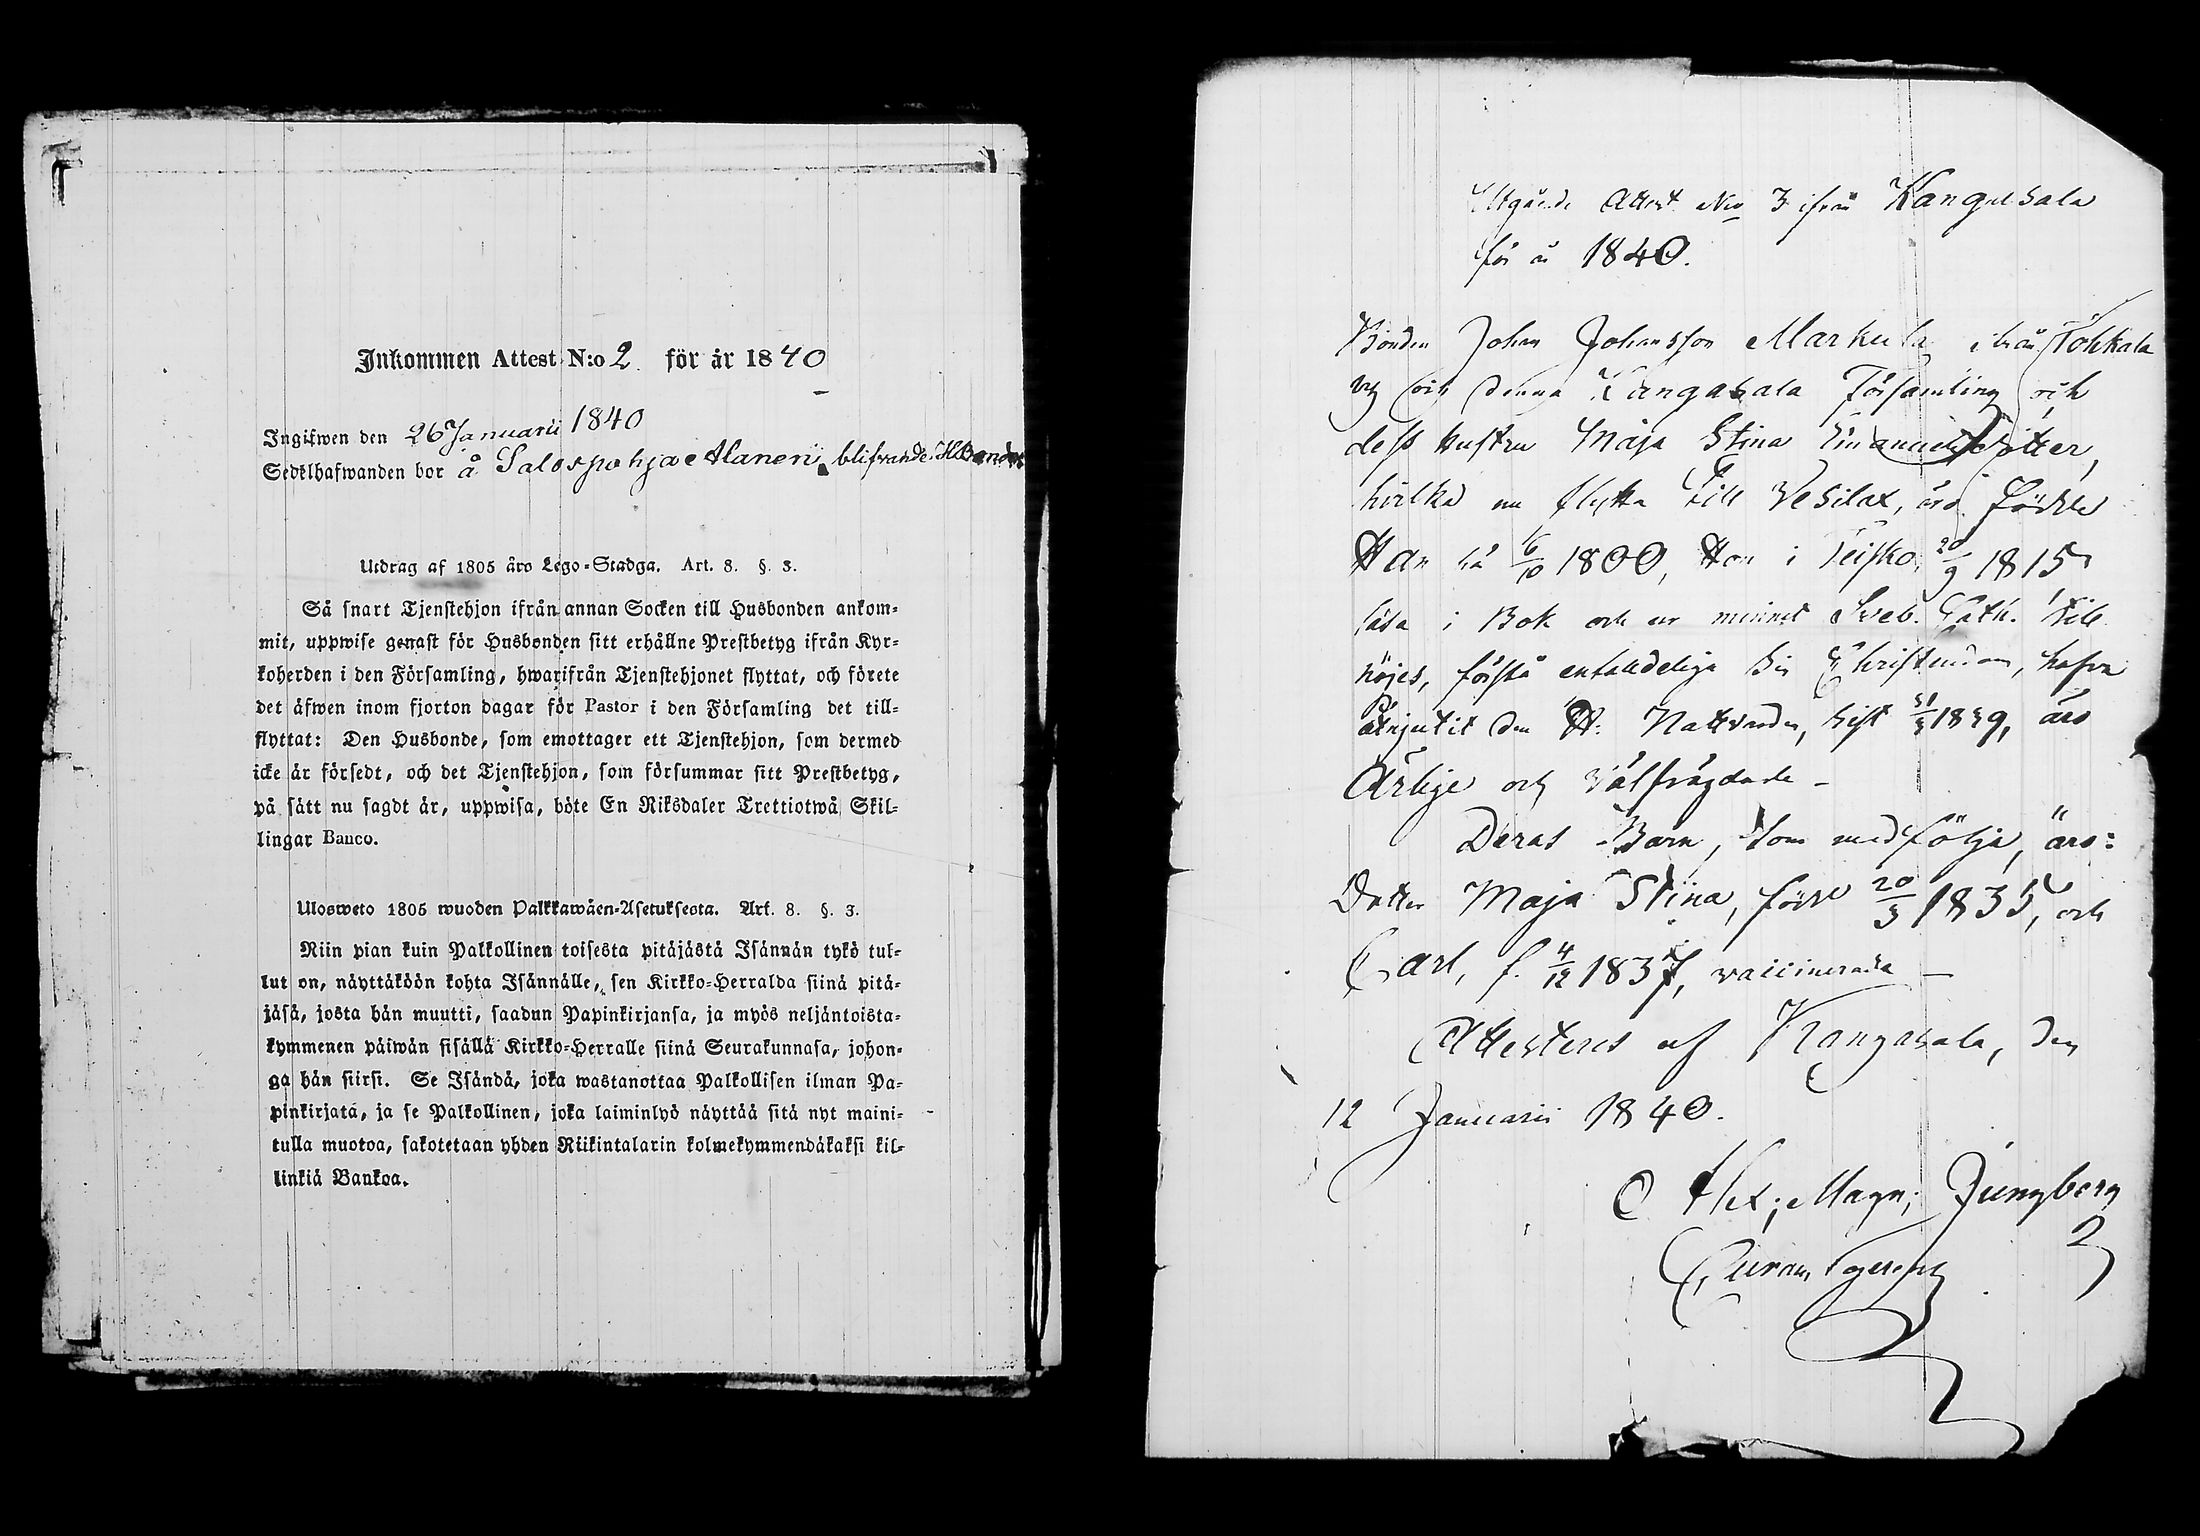 Inkommen Attest N:o 2 för år 1840
Ingifwen den 26 Januarii 1840
Sedelhafwanden bor å Salospohja Alanen, blifvande
Utdrag af 1805 åro Lego-Stadga. Art. 8. §. 3.
Så snart Tjenstehjon ifrån annan Socken till Husbonden ankom-
mit, uppwise genast för Husbonden sitt erhållne Prestbetyg ifrån Kyr-
koherden i den Församling, hwarifrån Tjenstehjonet flyttat, och förete
det äfwen inom fjorton dagar för Pastor i den Församling det till-
flyttat: Den Husbonde, som emottager ett Tjenstehjon, som dermed
icke är försedt, och det Tjenstehjon, som försummar sitt Prestbetyg,
på sätt nu sagdt är, uppwisa, böte En Riksdaler Trettiotwå Skil-
lingar Banco.
Ulosweto 1805 wuoden Palkkawäen-Asetuksesta. Art. 8. §. 3.
Niin pian kuin Palkollinen toisesta pitäjästä Isännän tykö tul-
lut on, näyttäköön kohta Isännälle, sen Kirkko-Herralda siinä pitä-
jäsä, josta hän muutti, saadun Papinkirjansa, ja myös neljäntoista-
kymmenen päiwän sisällä Kirkko-Herralle siinä Seurakunnasa, johon-
ga hän siirsi. Se Isändä, joka wastanottaa Palkollisen ilman Pa-
pinkirjata, ja se Palkollinen, joka laiminlyö näyttää sitä nyt maini-
tulla muotoa, sakotetaan yhden Riikintalarin kolmekymmendäkaksi kil-
linkiä Bankoa.
Utgående Attest No 3 ifrån Kangasala
för å 1840.
Bonden Johan Johansson Markula ifrån Tohkala
by och denna Kangasala Församling och
dess hustru Maja Stina Emanuelsdotter,
hvilka nu flytta till Vesilax, äro födde
Han hä 16/10 1800, Hon i Teisko 20/9 1815
läsa i Bok och ur minnet Sveb. Cath. till
nöjes, förstå enfaldeliga sin Christendom, hafva
åtnjutit den H. Nattvarden, sist 1839, äro
Ärlige och välfrägdade –
Deras Barn, som medfölja, äro:
Dotter Maja Stiina, född 20/3 1835, och
Carl, f. 4/12 1837, vaccinerade –
Attesteras af Kangasala, den
12 Januarii 1840.
Alex; Magn; Ljungberg
2